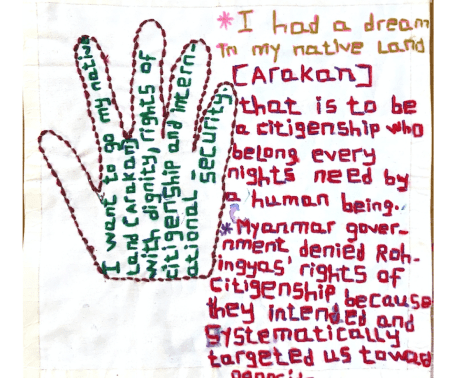 I want to go my native
Land (Arakan)
with dignity, rights of
citigenship and intern-
ational security.
*I had a dream
in my native Land
[Arakan]
that is to be
a citigenship who
belong every
rights need by
a human being.
*Myanmar gover-
nment denied Roh-
ingyas' rights of
citigenship because
they intended and
systematically
targeted us toward